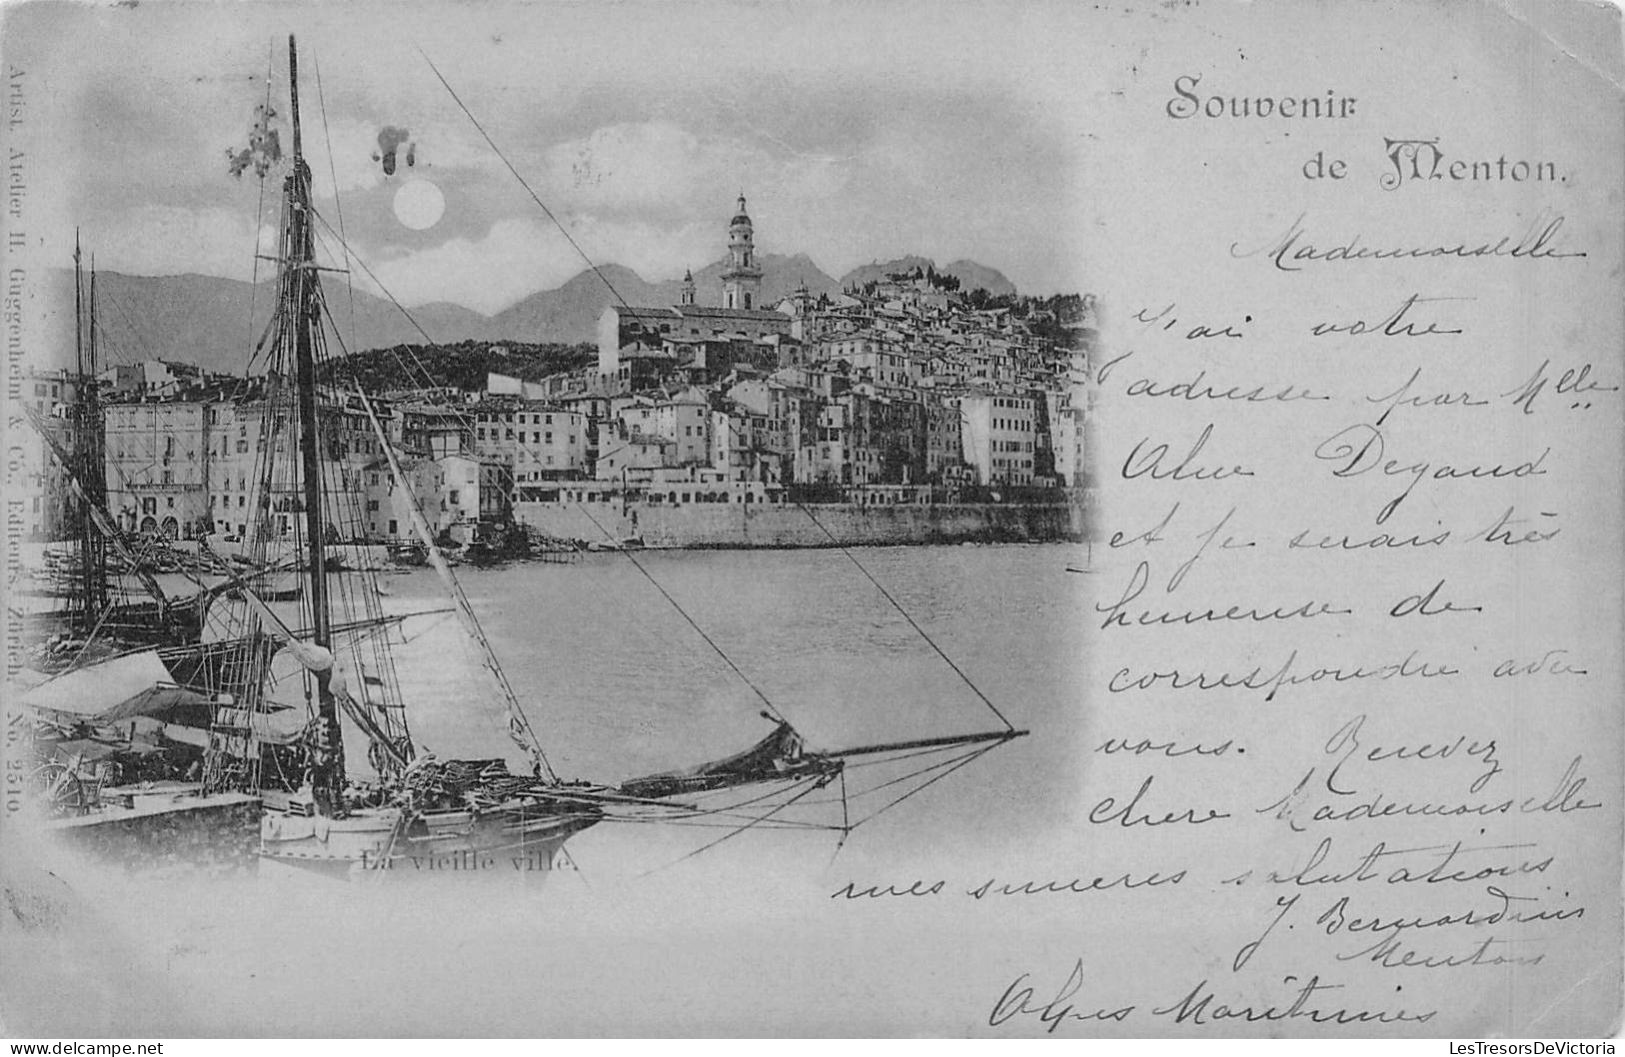 Souvenir
de Menton.
Mademoiselle
J'ai votre
adresse par Mlle
Degand
et je serais très
heureuse de
correspondre avec
vous. Recevez
chere Mademoiselle
mes sinceres salutations
J. Bernardini
Menton
Alpes Maritimes
La vieille ville.
Artist. Atelier H. Guggenheim & Co., Editeurs, Zürich. No. 2510.
LesTresorsDeVictoria